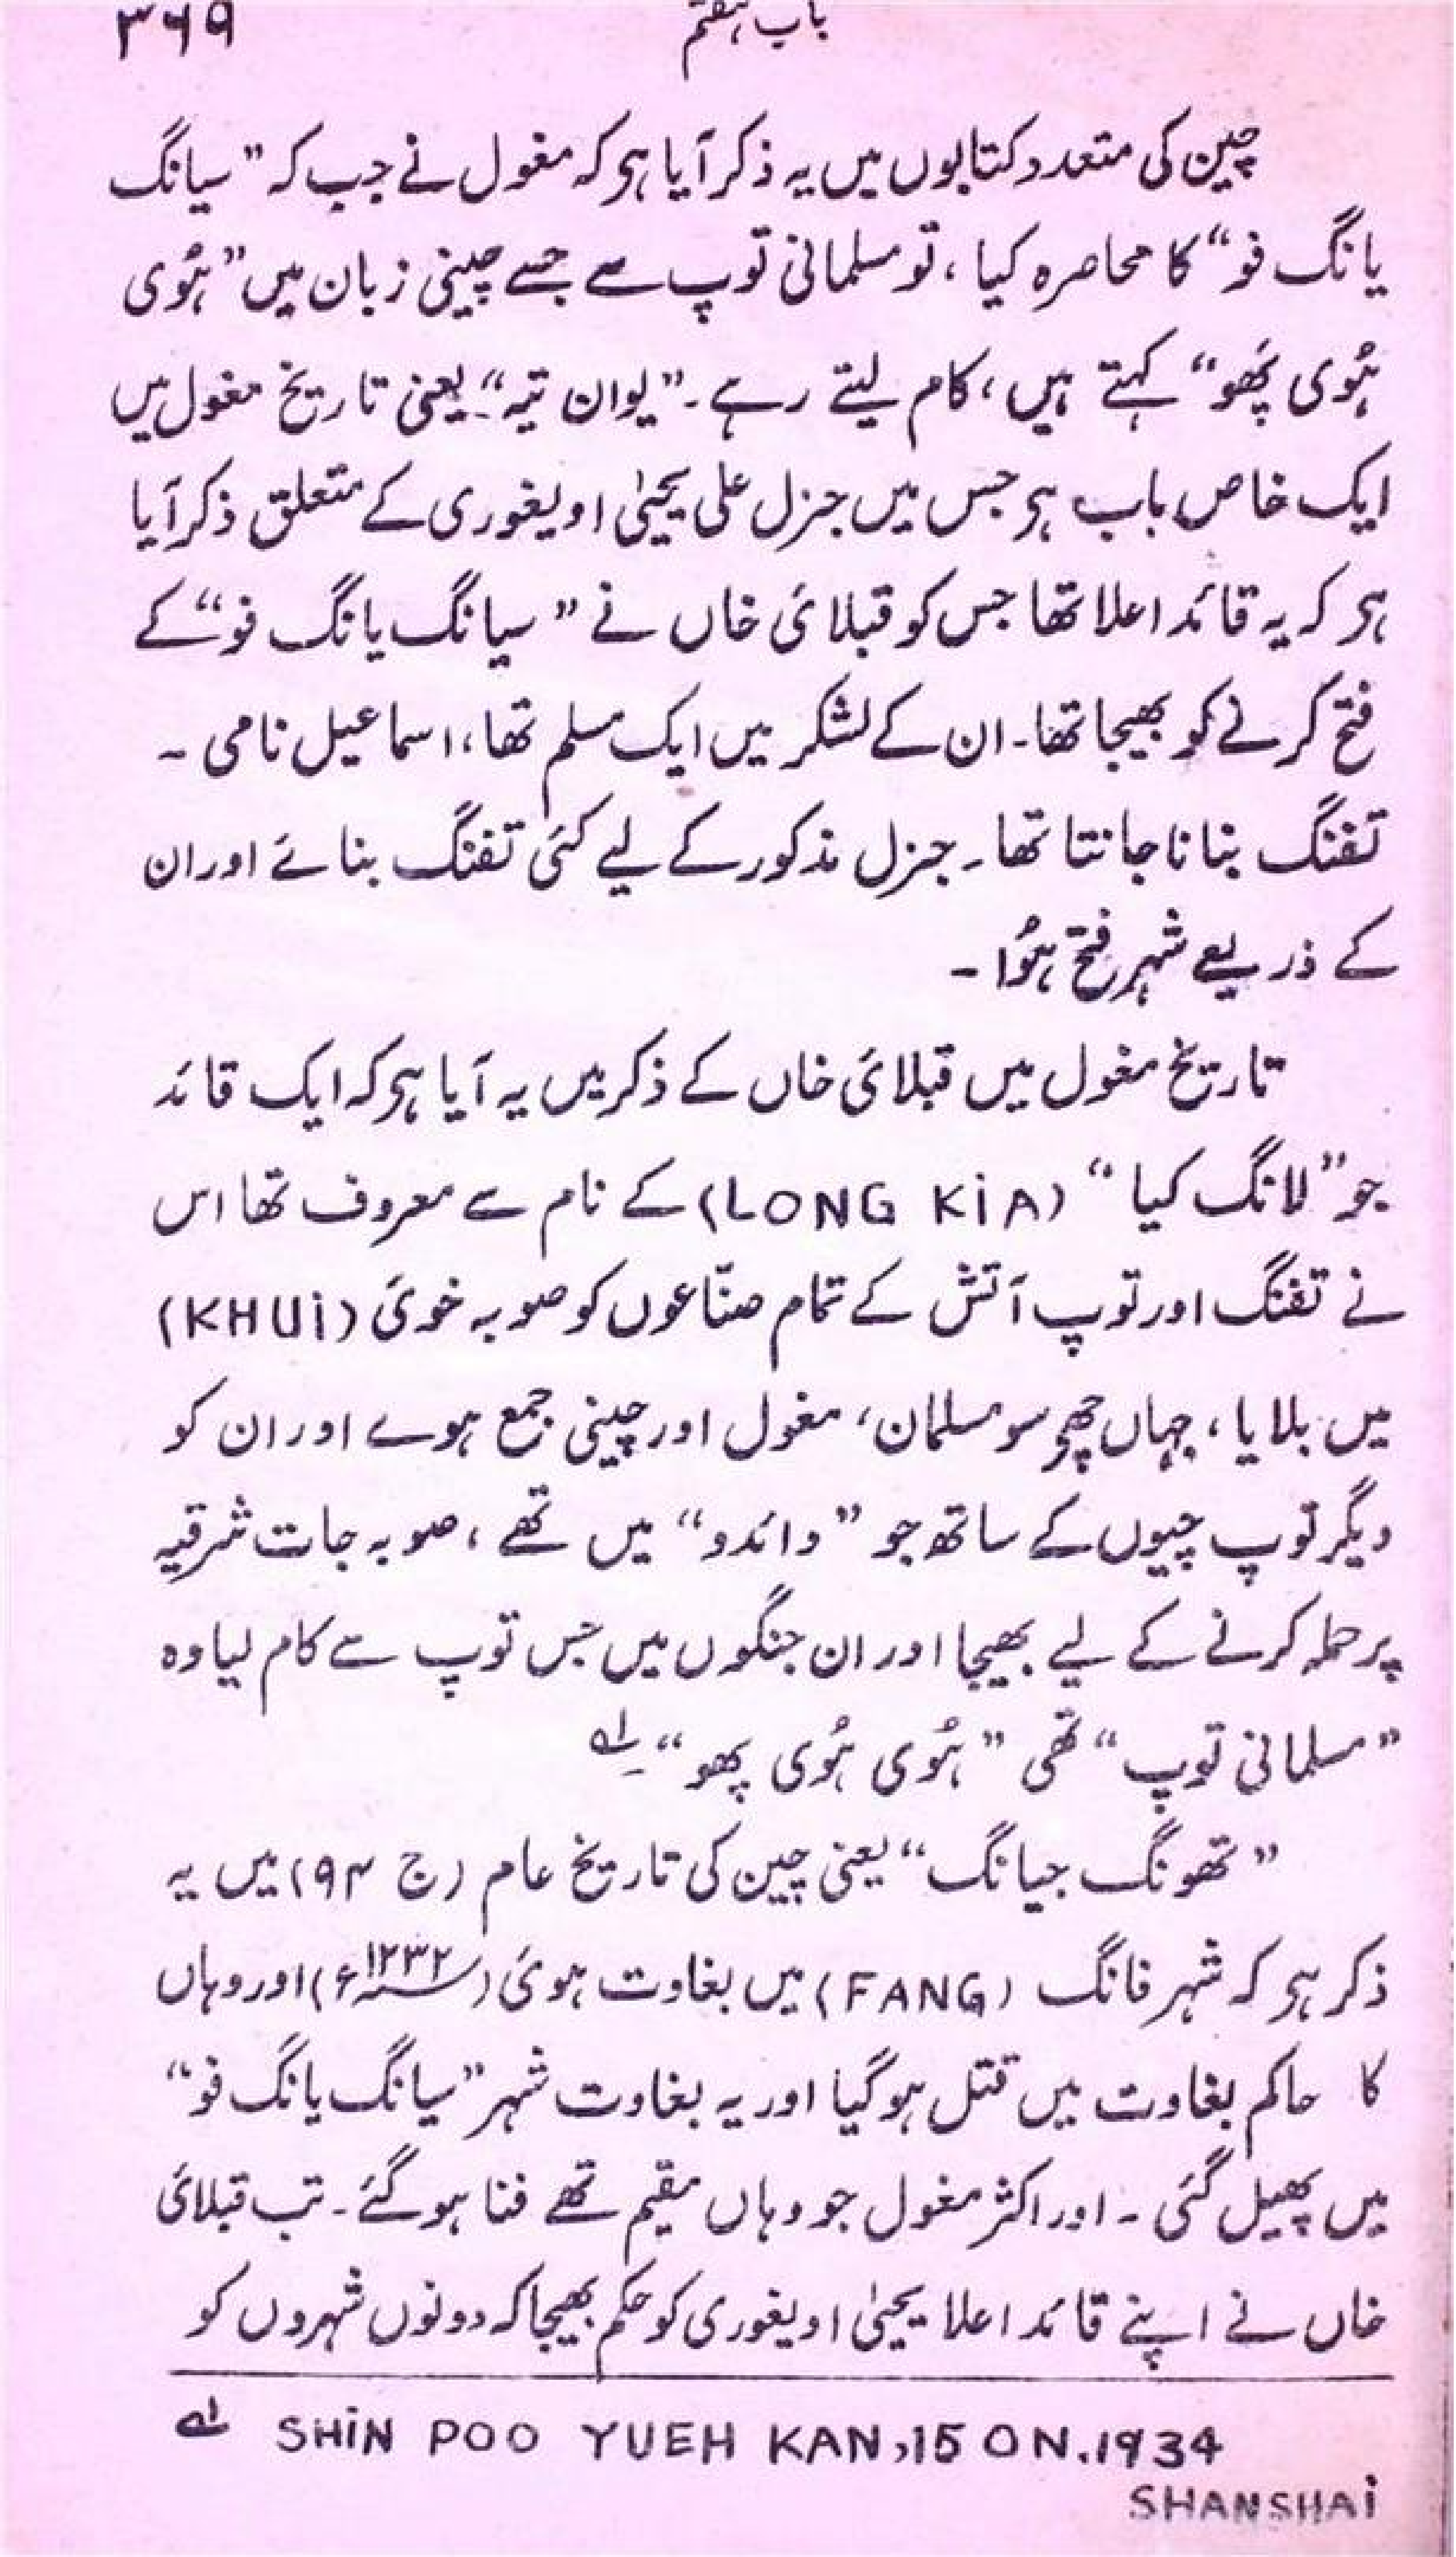 باب ہفتم ۳۶۹
چین کی متعدد کتابوں میں یہ ذکر آیا ہی کہ مغول نے جب کہ ”سیانگ
یانگ فو“ کا محاصرہ کیا، تو مسلمانی توپ سے جسے چینی زبان میں ”ہُوی
ہُوی پھو“ کہتے ہیں، کام لیتے رہے۔ ”یوان تیہ“۔ یعنی تاریخ مغول میں
ایک خاص باب ہی جس میں جنرل علی یحییٰ اویغوری کے متعلق ذکر آیا
ہی کہ یہ قائد اعلا تھا جس کو قبلائ خاں نے ”سیانگ یانگ فو“ کے
فتح کرنے کو بھیجا تھا۔ ان کے لشکر میں ایک مسلم تھا، اسماعیل نامی۔
تفنگ بنانا جانتا تھا۔ جنرل مذکور کے لیے کئی تفنگ بنائے اور ان
کے ذریعے شہر فتح ہُوا۔
تاریخ مغول میں قبلائ خاں کے ذکر میں یہ آیا ہی کہ ایک قائد
جو ”لانگ کیا“ (LONG KiA) کے نام سے معروف تھا اس
نے تفنگ اور توپ آتش کے تمام صنّاعوں کو صوبہ خوئ (KHUi)
میں بلایا، جہاں چھی سو مسلمان، مغول اور چینی جمع ہوے اور ان کو
دیگر توپ چیوں کے ساتھ جو ”وائدو“ میں تھے، صوبہ جات شرقیہ
پر حملہ کرنے کے لیے بھیجا اور ان جنگوں میں جس توپ سے کام لیا وہ
”مسلمانی توپ“ تھی ”ہُوی ہُوی پھو“۔ لہ
”تھونگ جیانگ“ یعنی چین کی تاریخ عام (ج ۹۴) میں یہ
ذکر ہی کہ شہر فانگ (FANG) میں بغاوت ہوئ (سنہ ۱۲۳۲ء) اور وہاں
کا حاکم بغاوت میں قتل ہوگیا اور یہ بغاوت شہر ”سیانگ یانگ فو“
میں پھیل گئی۔ اور اکثر مغول جو وہاں مقیم تھے فنا ہوگئے۔ تب قبلائ
خاں نے اپنے قائد اعلا یحییٰ اویغوری کو حکم بھیجا کہ دونوں شہروں کو
لہ SHiN POO YUEH KAN,15 ON.1934
SHANSHAi